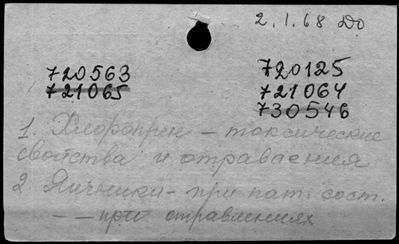 2.1.68 До
720563
721065
720125
721064
730546
1. Хлоропрен – токсические
свойства и отравления
2 Яичники – при пат. сост.
– – при отравлениях